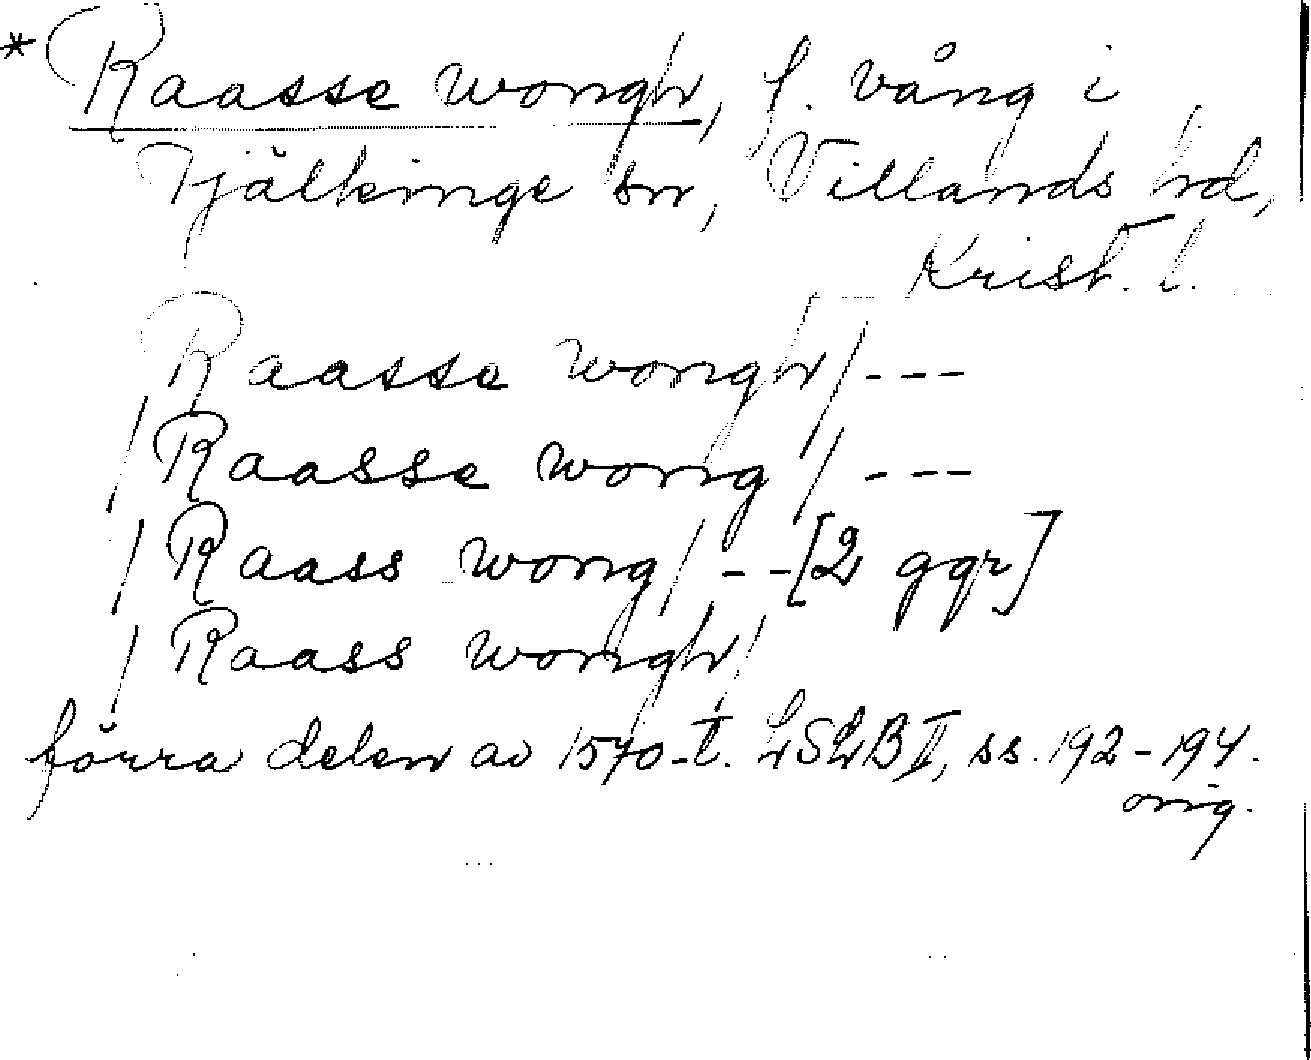 * Raasse wongh, f. vång i
Fjälkinge sn, Villands hd,
Krist. l.
Raasse wongh/ ---
/Raasse wong/ ---
/Raass wong/ -- [2 ggr]
/Raass wongh/
förra delen av 1570-t. LSLB II, ss. 192-194.
orig.